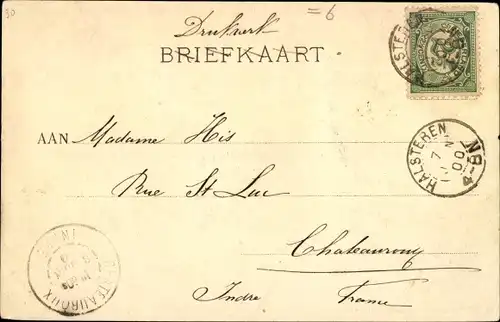 30
=6
Drukwerk
BRIEFKAART
HALSTEREN
AAN Madame His
Rue St Luc
Chateauroux
Indre France
HALSTEREN NB
7
00
4-5
CHATEAUROUX